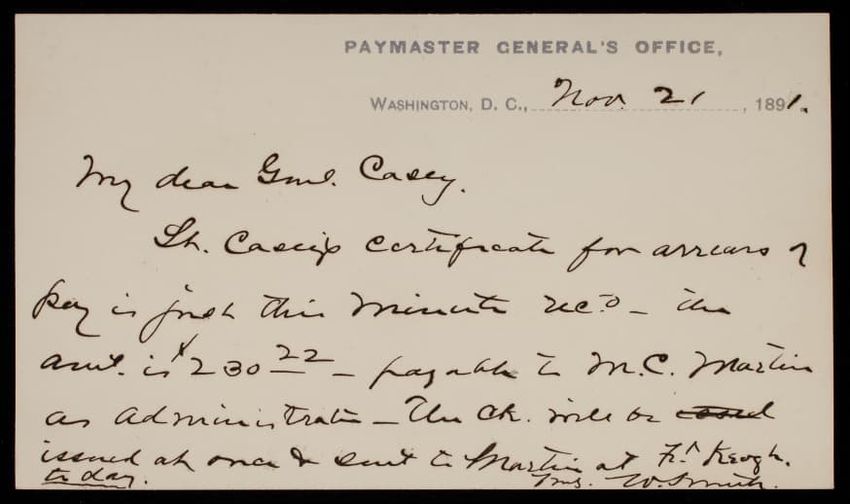 PAYMASTER GENERAL'S OFFICE,
WASHINGTON, D. C., Nov. 21, 1891.
My dear Genl. Casey.
Lt. Casey's certificate for arrears of
pay is just this minute rec'd – the
amt. is $230 22 – payable to M.C. Martin
as administrator – The ck. will be
issued at once & sent to Martin at Ft. Keogh.
to day. W. Smith.